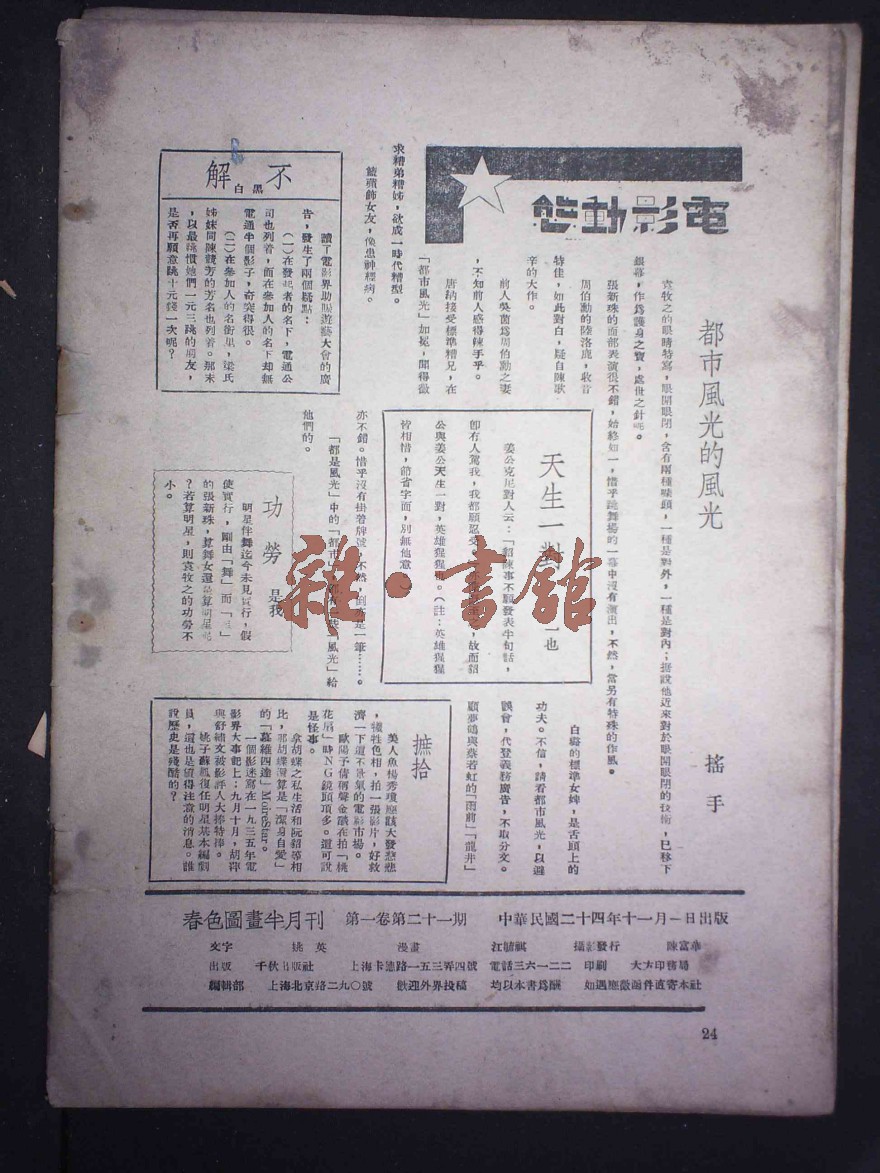 電影動態
都市風光的風光
搖手
袁牧之的眼睛特寫，眼開眼閉，含有兩種噱頭，一種是對外，一種是對內；據說他近來對於眼開眼閉的技術，已移下
銀幕，作爲護身之寶，處世之針呢。
張新珠的面部表演很不錯，始終如一，惜乎跳舞場的一幕中沒有演出，不然，當另有特殊的作風。
周伯勳的陸洛鹿，收音
特佳，如此對白，疑自陳歌
辛的大作。
前人吳茵爲周伯勳之妻
，不知前人感得棘手乎。
唐納接受標準糟兄，在
「都市風光」加冕，聞得徵
求糟弟糟姊，欲成一時代糟型。
藍蘋飾女友，像患神經病。
白璐的標準女婢，是舌頭上的
功夫。不信，請看都市風光，以避
誤會，代登義務廣告，不取分文。
顧夢鶴與蔡若虹的「雨前」「龍井」
亦不錯。惜乎沒有掛着牌
不然，倒
是一筆……。
「都是風光」中的「都市」
風光」給
他們的。
天生一對
一也
姜公克尼對人云：「貂陳事不願發表半句話，
卽有人罵我，我都願忍受
故而貂
公與姜公天生一對，英雄猩猩
。（註：英雄猩猩
皆相惜，節省字面，別無他意
不解
黑白
讀了電影界助賑遊藝大會的廣
告，發生了兩個疑點：
（一）在發起者的名下，電通公
司也列着，而在參加人的名下却無
電通半個影子，奇突得很。
（二）在參加人的名銜里，梁氏
姊妹同陳競芳的芳名也列着。那末
，以最跳慣她們一元三跳的朋友，
是否再願意跳十元錢一次呢？
功勞
是我
明星伴舞迄今未見實行，假
使實行，關由「舞」而「星」
的張新珠，算舞女還是算明星呢
？若算明星，則袁牧之的功勞不
小。
摭拾
美人魚楊秀瓊應該大發慈悲
，犧牲色相，拍一張影片，好救
濟一下這不景氣的電影市場。
歐陽予倩稱聲金談在拍「桃
花扇」時NG鏡頭頂多。這可說
是怪事。
拿胡蝶之私生活和阮錦等相
比，那胡蝶還算是「潔身自愛」
的「慕維四達」MovieStar。
一個影迷寫在一九三五年電
影界大事記上：九月十月，胡萍
與舒繡文被影評人大捧特捧。
姚子蘇鳳復任明星基本編劇
員，這也是值得注意的消息。誰
說歷史是殘酷的？
春色圖畫半月刊 第一卷第二十一期 中華民國二十四年十一月一日出版
文字 姚英 漫畫 江毓祺 攝影發行 陳富華
出版 千秋出版社 上海卡德路一五三弄四號 電話三六一二二 印刷 大方印務局
編輯部 上海北京路二九〇號 歡迎外界投稿 均以本書爲酬 如遇應徵函件直寄本社
24
雜·書館